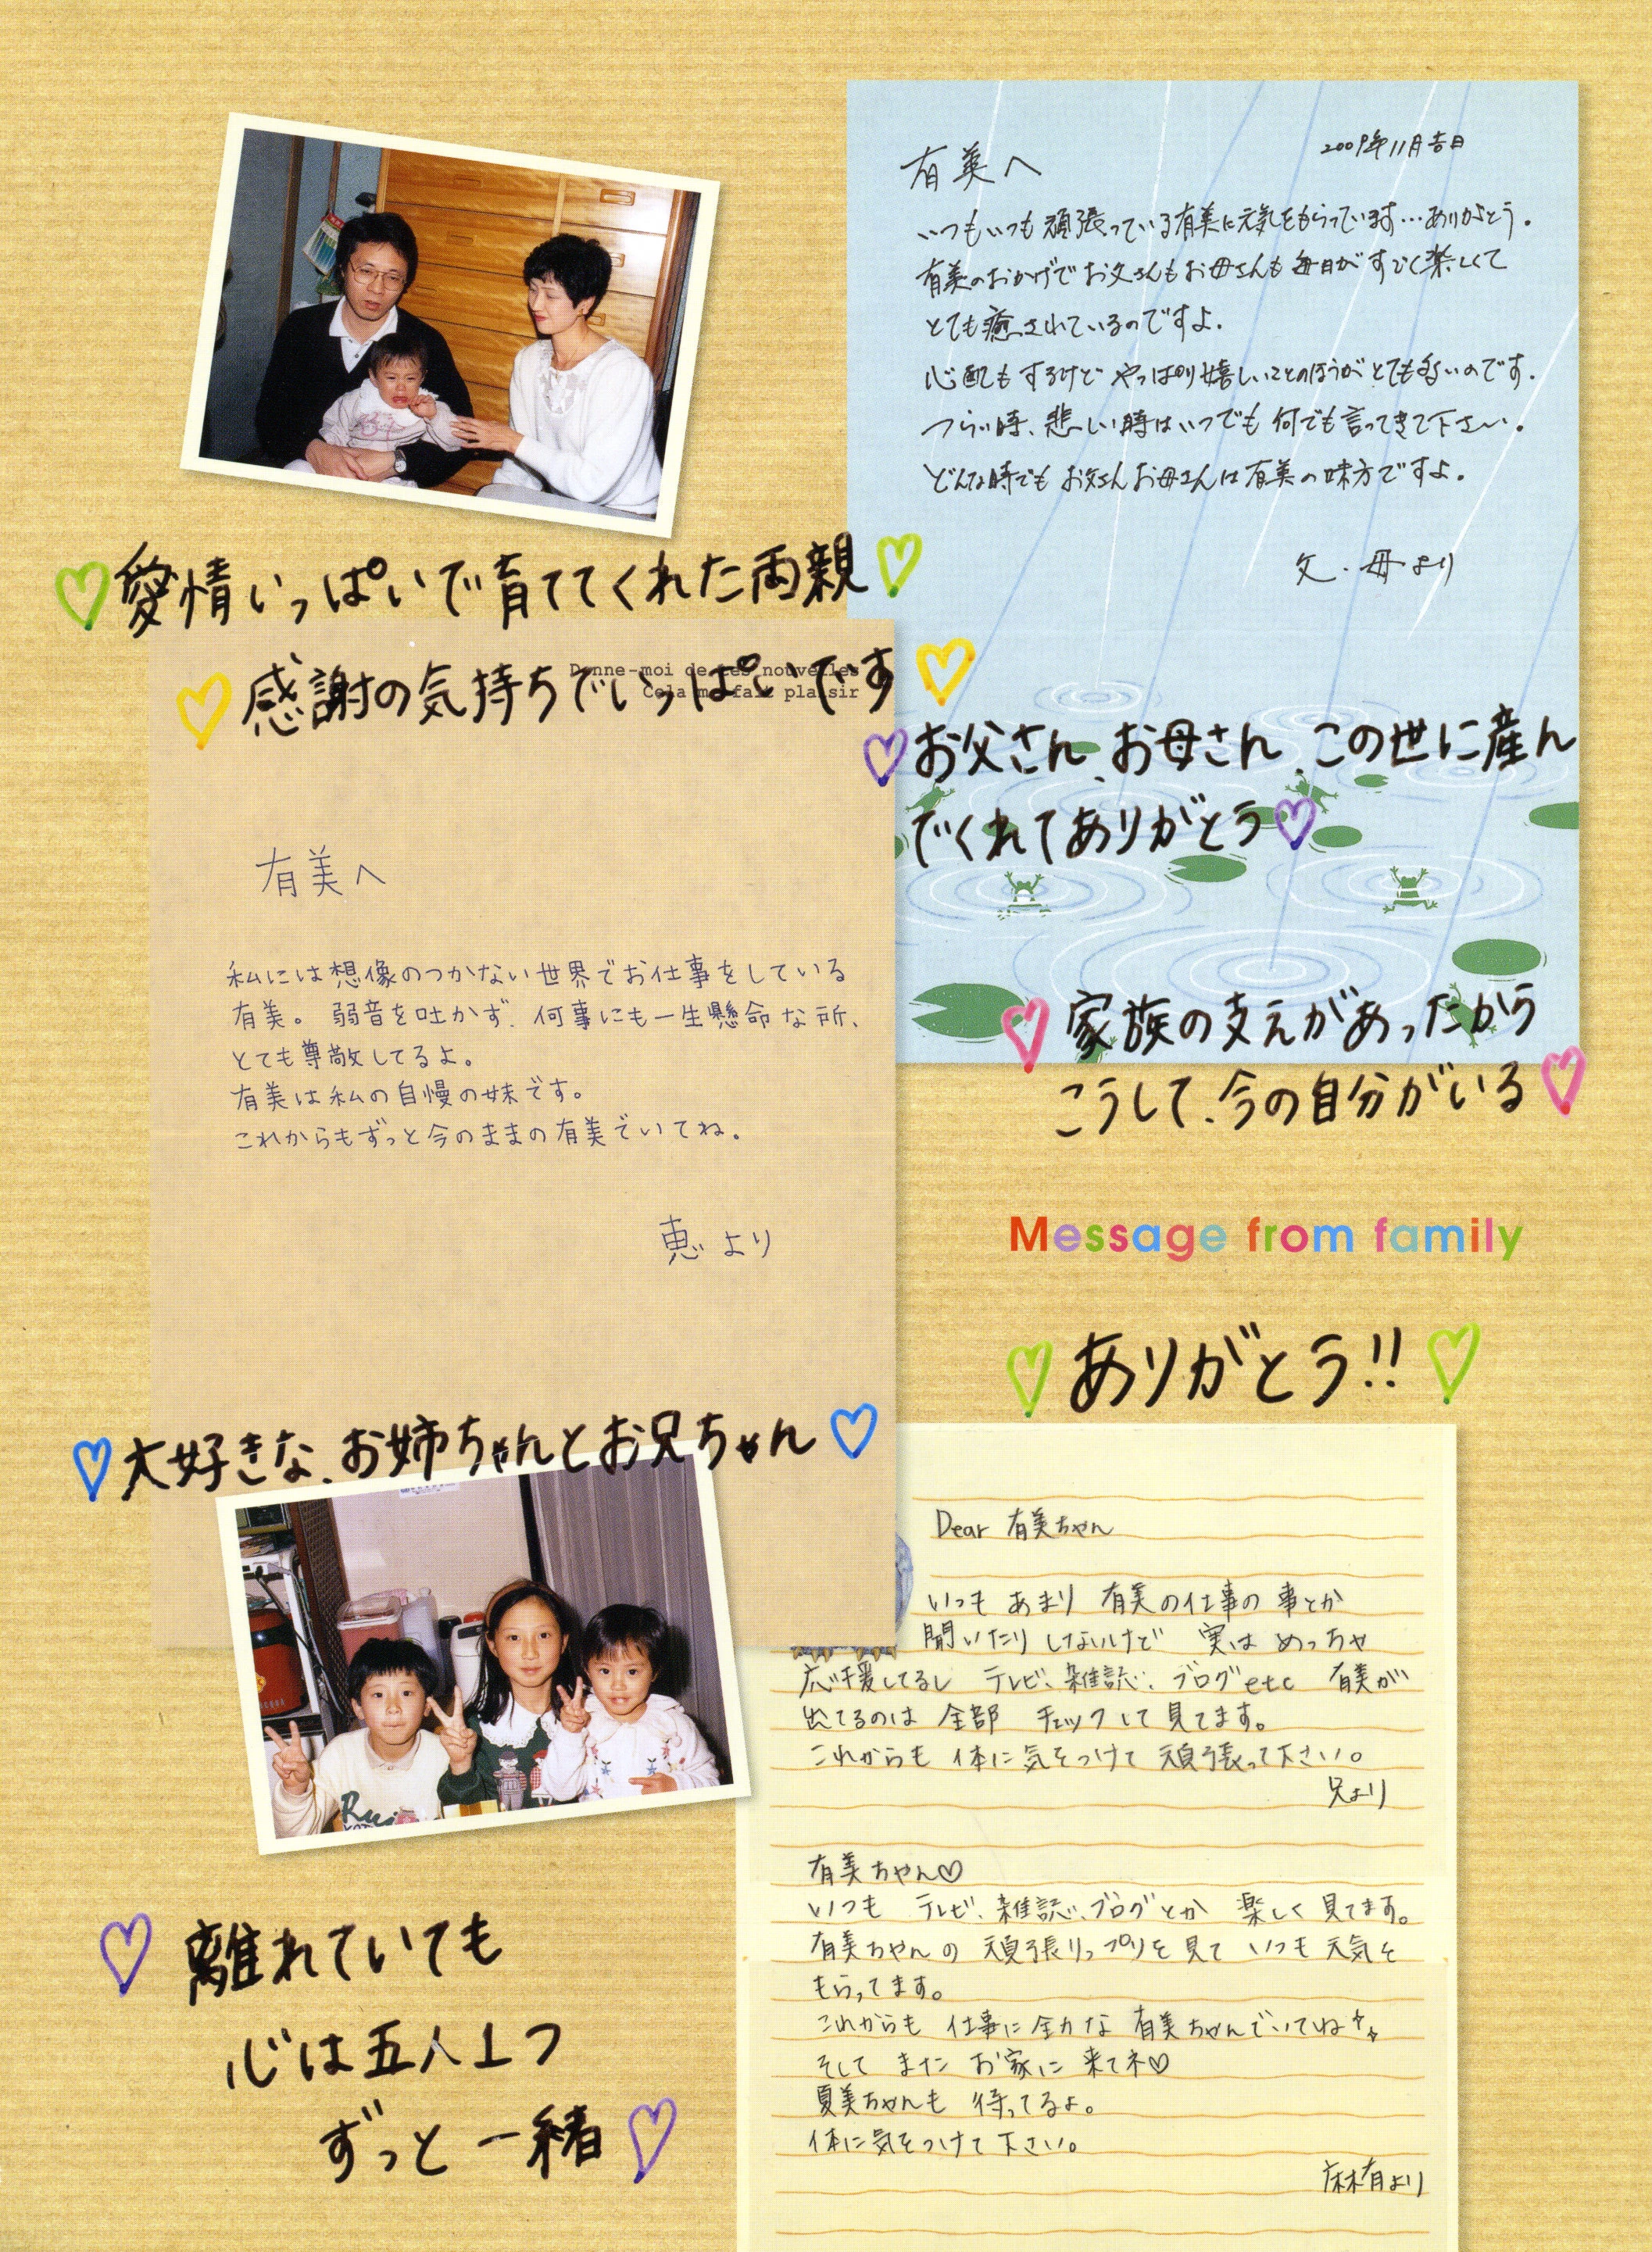 2009年11月吉日
有美へ
いつもいつも頑張っている有美に元気をもらっています…ありがとう。
有美のおかげでお父さんもお母さんも毎日がすごく楽しくて
とても癒されているのですよ.
心配もするけど やっぱり嬉しいことのほうがとても多いのです.
つらい時、悲しい時はいつでも何でも言ってきて下さい.
どんな時でもお父さんお母さんは有美の味方ですよ.
父・母より
愛情いっぱいで育ててくれた両親
感謝の気持ちでいっぱいです
Donne-moi de tes nouvelles
Cela me fait plaisir
お父さん、お母さん、この世に産ん
でくれてありがとう
家族の支えがあったから
こうして、今の自分がいる
有美へ
私には想像のつかない世界でお仕事をしている
有美。弱音を吐かず、何事にも一生懸命な所、
とても尊敬してるよ。
有美は私の自慢の妹です。
これからもずっと今のままの有美でいてね。
恵より
Message from family
ありがとう!!
大好きな、お姉ちゃんとお兄ちゃん
Dear 有美ちゃん
いつも あまり 有美の仕事の事とか
聞いたり しないけど 実は めっちゃ
応援してるし テレビ、雑誌、ブログetc 有美が
出てるのは 全部 チェックして見てます。
これからも 体に気をつけて 頑張って下さい。
兄より
有美ちゃん♡
いつも テレビ、雑誌、ブログとか 楽しく見てます。
有美ちゃんの 頑張りっプリを見て いつも元気を
もらってます。
これからも 仕事に全力な 有美ちゃんでいてね
そして また お家に 来てネ♡
夏美ちゃんも 待ってるよ。
体に気をつけて下さい。
麻有より
離れていても
心は五人1つ
ずっと一緒